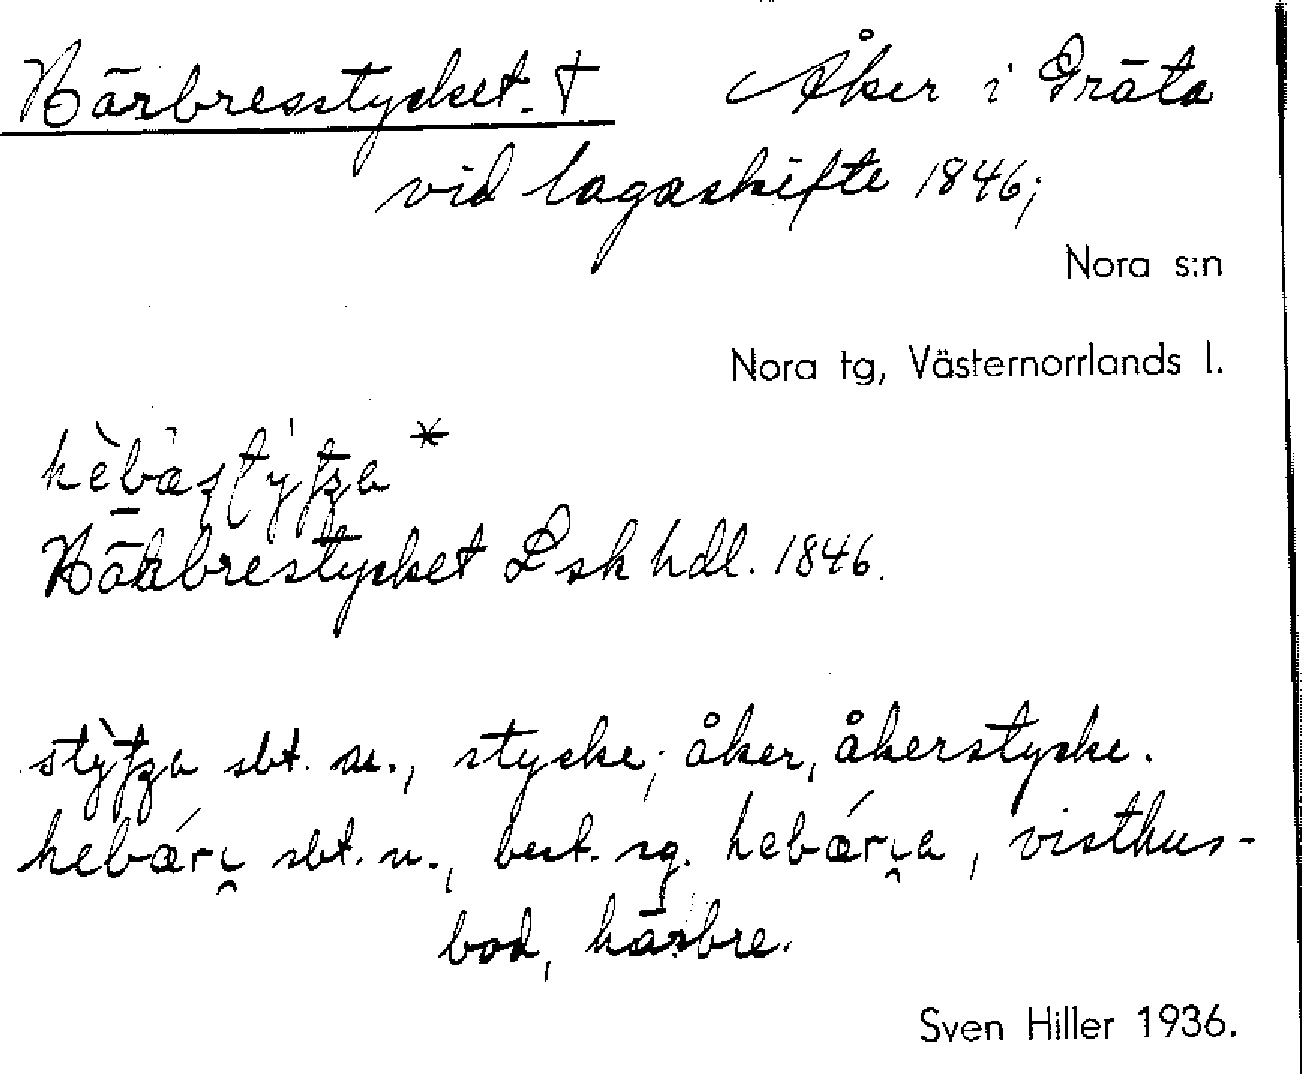 Härbresstycket. † Åker i Gräta
vid lagaskifte 1846;
Nora s:n
Nora tg, Västernorrlands l.
Härbrestycket Lsk hdl. 1846.
sbt. n., stycke; åker, åkerstycke.
sbt. n., best. sg. , visthus-
bod, härbre.
Sven Hiller 1936.